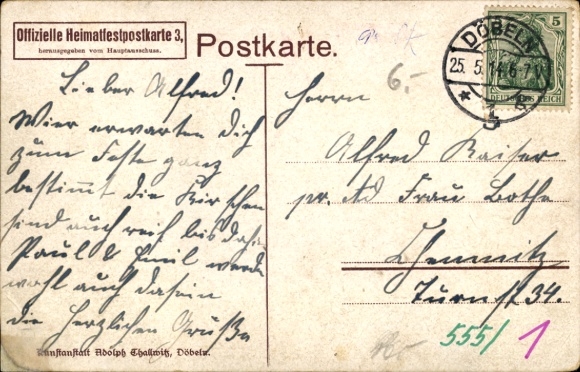 Offizielle Heimatfestpostkarte 3,
herausgegeben vom Hauptausschuss.
Postkarte.
5
DEUTSCHES REICH
DÖBELN
25. 5. 14. 6-7 N
* 5 b
6.-
Lieber Alfred!
Wier erwarten Dich
zum Feste ganz
bestimmt die Kirschen
sind auch reif bis dahin
Paul & Emil werden
wohl auch da sein
die Herzlichen Grüße
Herrn
Alfred Kaiser
pr. Ad Frau Bothe
Chemnitz
Turnst 34.
555/ 1
Kunstanstalt Adolph Thallwitz, Döbeln.